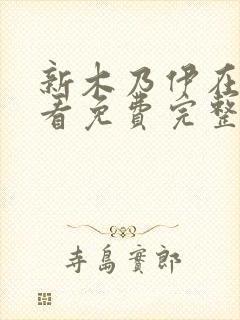 新木乃伊在
看免费完整
寺島實郎